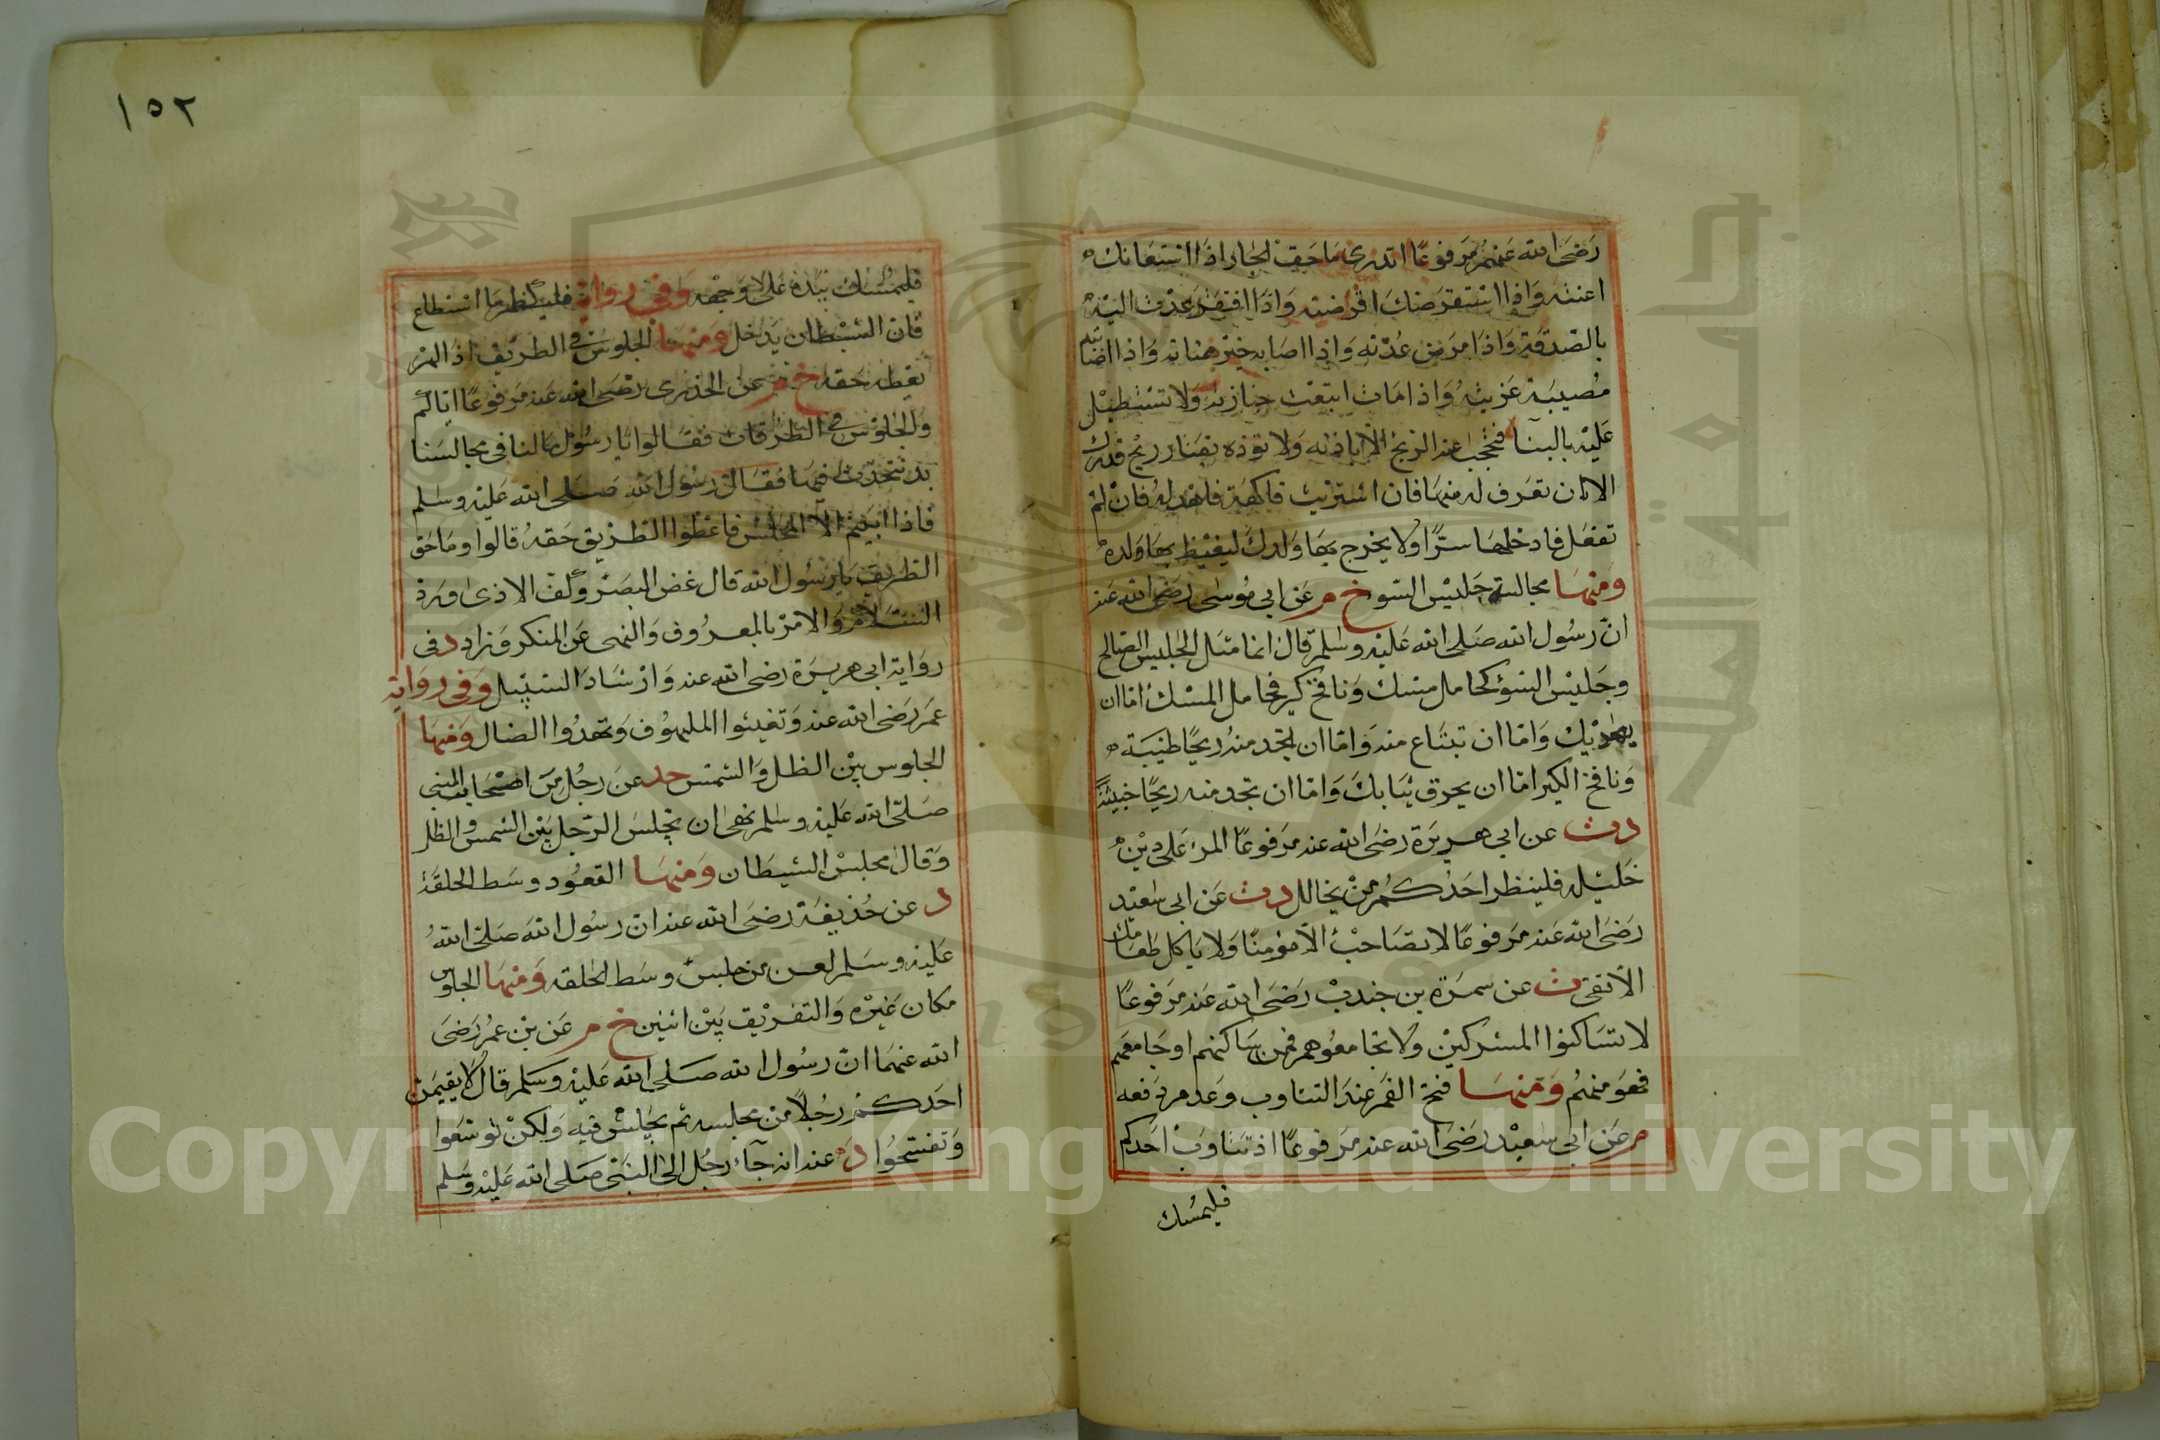 رضي الله عنهم مرفوعا اتدري ما حق الجار اذا استعانك
اعنته واذا استقرضك اقرضته واذا افتقر عدت اليه
بالصدقة واذا مرض عدته واذا اصابه خير هناته واذا اصابته
مصيبة عزيته واذا مات اتبعت جنازته ولا تستطيل
عليه بالبنآ فتحجب عنه الريح الا باذنه ولا توذه بقتار ريح قدرك
الا ان تغرف له منها فان اشتريت فاكهة فاهد له فان لم
تفعل فادخلها سترا ولا يخرج بها ولدك ليغيظ بها ولده
ومنها مجالسة جليس السو خ م عن ابي موسى رضى الله عنه
ان رسول الله صلى الله عليه وسلم قال انما مثل الجليس الصالح
وجليس السؤ كحامل مسك ونافخ كير فحامل المسك اما ان
يهديك واما ان تبتاع منه واما ان تجد منه ريحا طيبة
ونافخ الكير اما ان يحرق ثيابك واما ان تجد منه ريحا خبيثة
دت عن ابي هريرة رضى الله عنه مرفوعا المرء على دين
خليله فلينظر احدكم من يخالل دت عن ابى سعيد
رضى الله عنه مرفوعا لا تصاحب الا مؤمنا ولا ياكل طعامك
الا تقي ت عن سمرة بن جندب رضى الله عنه مرفوعا
لا تساكنوا المشركين ولا تجامعوهم فمن ساكنهم او جامعهم
فهو منهم ومنها فتح الفم عند التثاوب وعدم دفعه
م عن ابى سعيد رضى الله عنه مرفوعا اذ تثاوب احدكم
فليمسك
١٥٢
فليمسك بيده على وجهه وفى رواية فليكظم ما استطاع
فان الشيطان يدخل ومنها الجلوس في الطريق اذا لم
يعطه حقه خ م عن الخدري رضى الله عنه مرفوعا اياكم
والجلوس في الطرقات فقالوا يا رسول ما لنا فى مجالسنا
بد نتحدث فيها فقال رسول الله صلى الله عليه وسلم
فاذا ابيتم الا المجلس فاعطوا الطريق حقه قالوا وما حق
الطريق يا رسول الله قال غض البصر وكف الاذى ورد
السلام والامر بالمعروف والنهى عن المنكر وزاد د فى
رواية ابى هريرة رضى الله عنه وارشاد السبيل وفى رواية
عمر رضى الله عنه وتغيثوا الملهوف وتهدوا الضال ومنها
الجلوس بين الظل والشمس حد عن رجل من اصحاب النبى
صلى الله عليه وسلم نهى ان يجلس الرجل بين الشمس والظل
وقال مجلس الشيطان ومنها القعود وسط الحلقة
د عن حذيفة رضى الله عنه ان رسول الله صلى الله
عليه وسلم لعن من جلس وسط الحلقه ومنها الجلوس
مكان غيره والتفريق بين اثنين خ م عن بن عمر رضى
الله عنهما ان رسول الله صلى الله عليه وسلم قال لا يقيمن
احدكم رجلا من مجلسه ثم يجلس فيه ولكن توسعوا
وتفسحوا د عنه انه جآء رجل الى النبى صلى الله عليه وسلم
Copyright © King Saud University